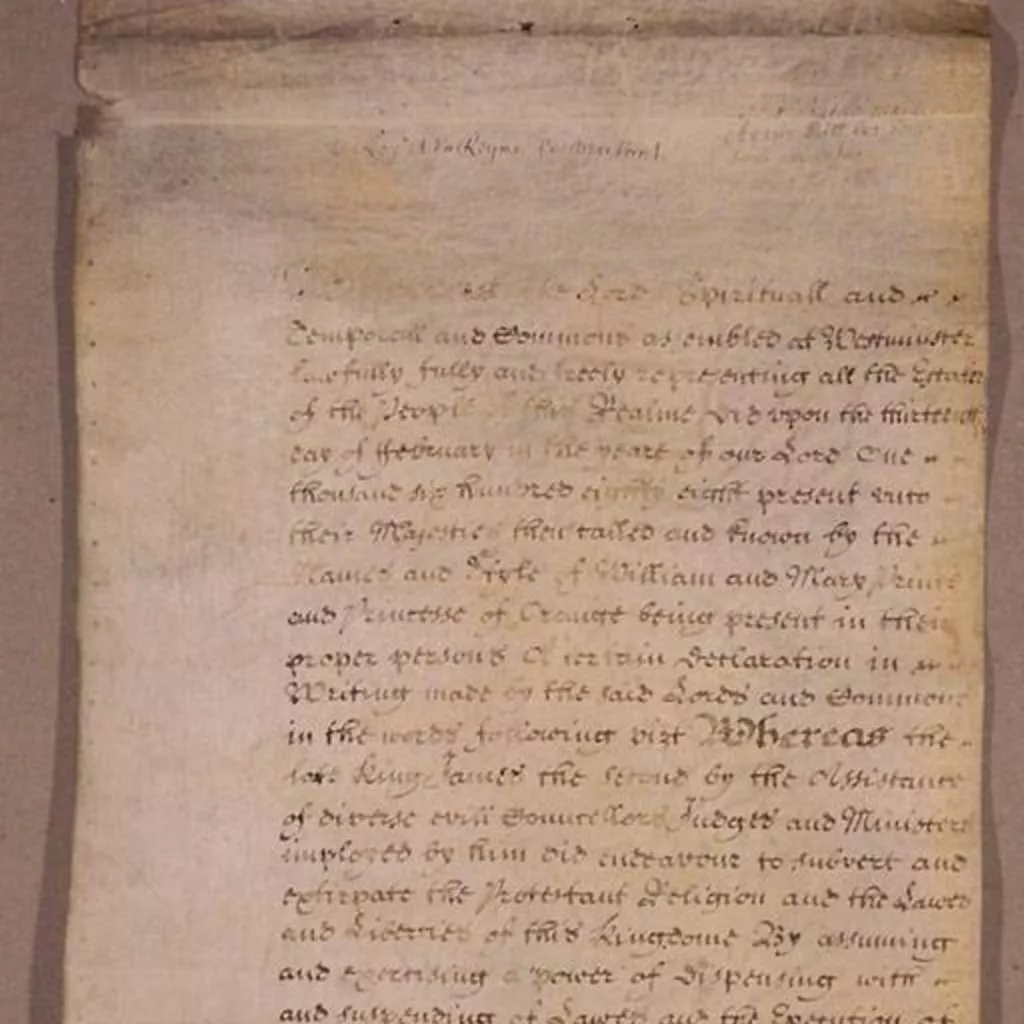 Le Roy & la Reyne le veulent
the Lords Spirituall and
Temporall and Commons assembled at Westminster
lawfully fully and freely representing all the Estates
of the People of this Realme did upon the thirteenth
day of ffebruary in the yeare of our Lord One
thousand six hundred eighty eight present unto
their Majesties then called and known by the
Names and Style of William and Mary Prince
and Princesse of Orange being present in their
proper persons A certain Declaration in
Writing made by the said Lords and Commons
in the words following vizt Whereas the
late King James the second by the Assistance
of diverse evill Councellors Judges and Ministers
imployed by him did endeavour to subvert and
extirpate the Protestant Religion and the Lawes
and Liberties of this Kingdome By assuming
and exercising a power of dispensing with
and suspending of Lawes and the Execution of